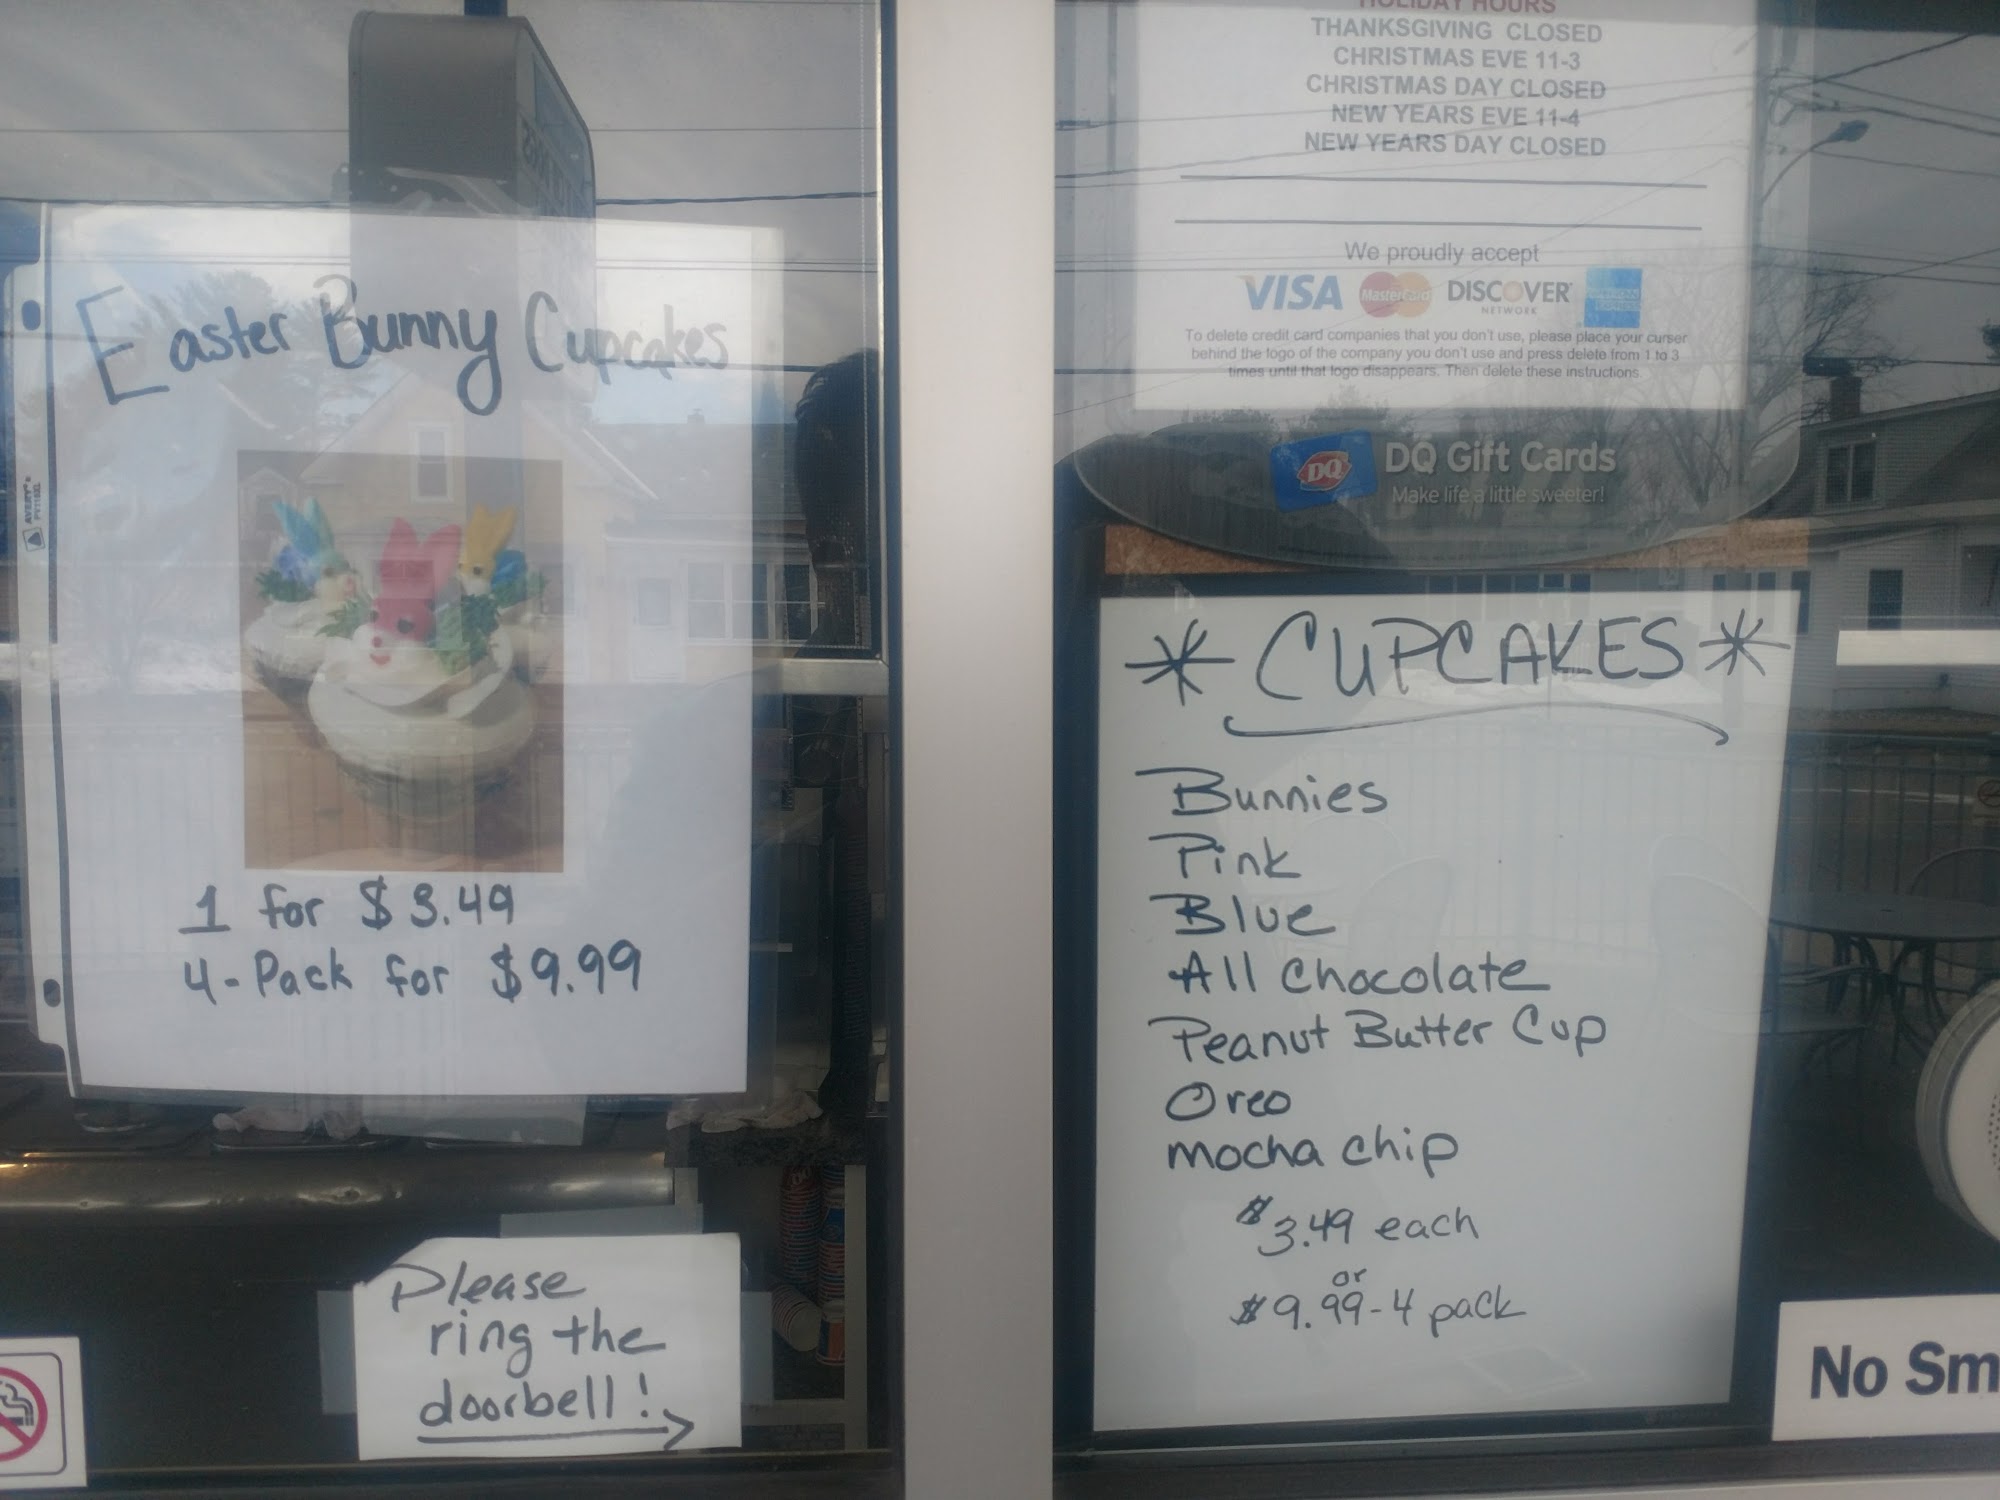 Easter Bunny Cupcakes
1 for $3.49
4-Pack for $9.99
AVERY
Please
ring the
doorbell!
HOLIDAY HOURS
THANKSGIVING CLOSED
CHRISTMAS EVE 11-3
CHRISTMAS DAY CLOSED
NEW YEARS EVE 11-4
NEW YEARS DAY CLOSED
We proudly accept
VISA MasterCard DISCOVER
NETWORK
To delete credit card companies that you don't use, please place your curser
behind the logo of the company you don't use and press delete from 1 to 3
times until that logo disappears. Then delete these instructions.
DQ
DQ Gift Cards
Make life a little sweeter!
* CUPCAKES *
Bunnies
Pink
Blue
All Chocolate
Peanut Butter Cup
Oreo
mocha chip
$3.49 each
or
$9.99-4 pack
No Sm